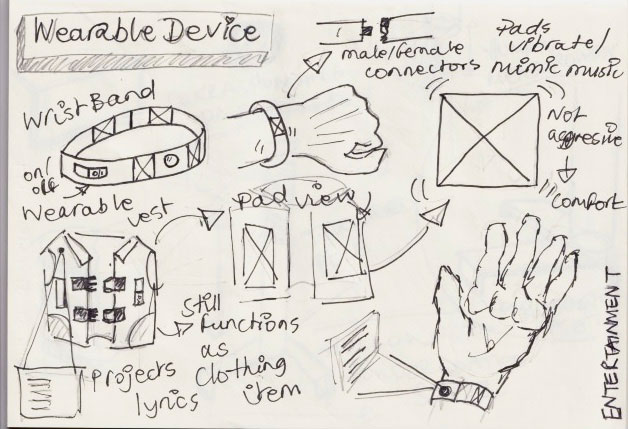 Wearable Device
male/female
connectors
Pads
vibrate/
mimic music
Not
aggresive
comfort
Wrist Band
on/
off
Wearable
vest
Pad view
Still
functions
as
clothing
item
Projects
lyrics
ENTERTAINMENT